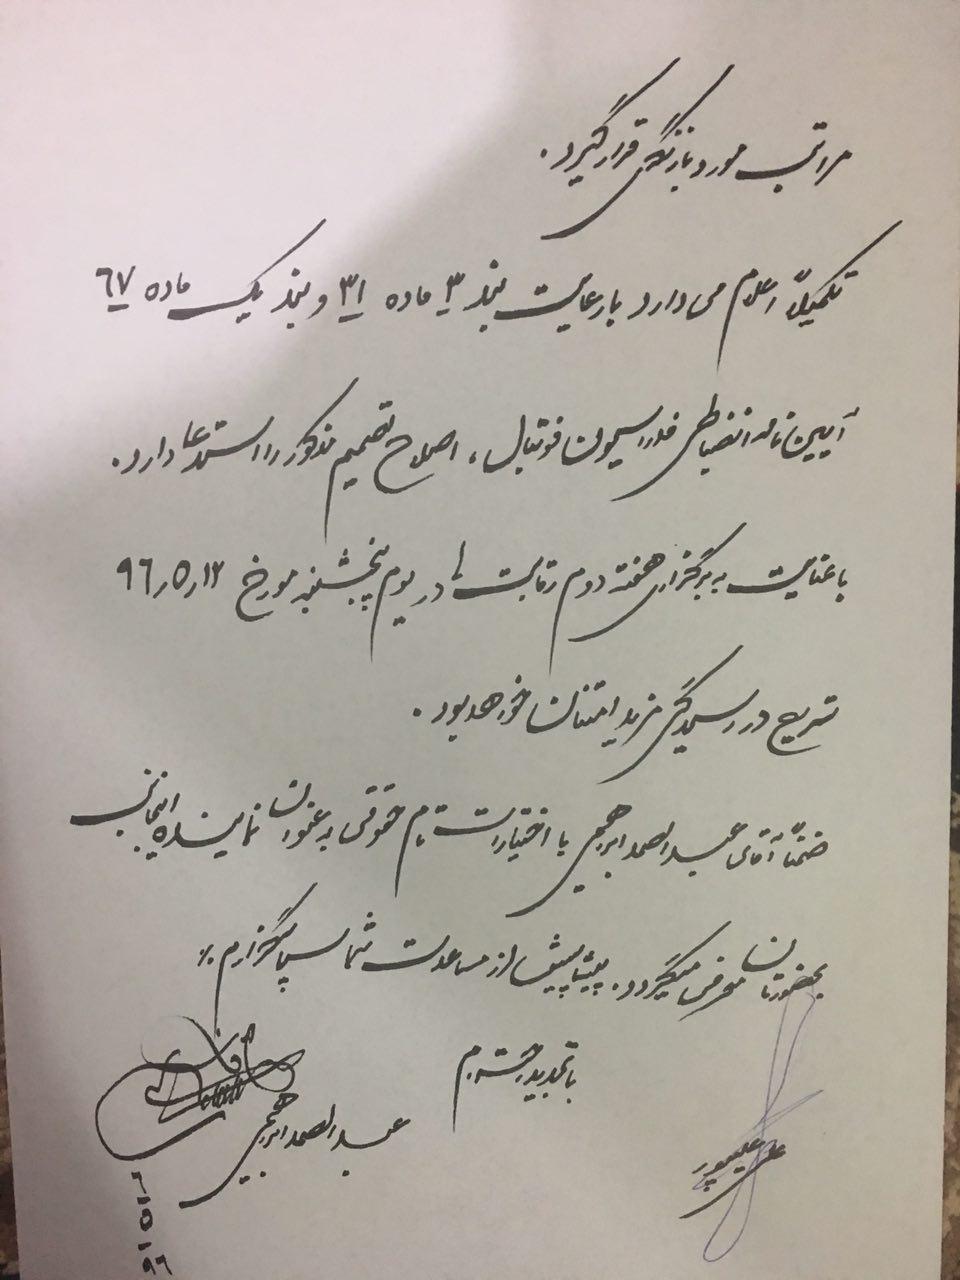 مراتب مورد بازنگری قرار گیرد.
تکمیلاً اعلام می دارد با رعایت بند ۳ ماده ۳۱ و بند یک ماده ۶۷
آیین نامه انضباطی فدراسیون فوتبال، اصلاح تصمیم مذکور را استدعا دارد.
با عنایت به برگزاری هفته دوم رقابت ها در یوم پنجشنبه مورخ ۹۶٫۵٫۱۲
تسریع در رسیدگی مزید امتنان خواهد بود.
ضمناً آقای عبدالصمد ابراهیمی با اختیارات تام حقوقی به عنوان نماینده اینجانب
بحضورتان معرفی میگردد. پیشاپیش از مساعدت شما سپاسگزارم٪
با تجدید احترام
عبدالصمد ابراهیمی
علی عیسی پور